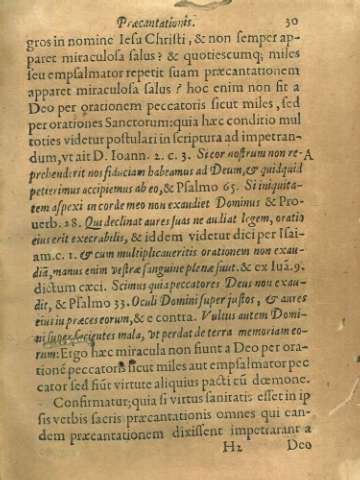 Præcantationis. 30
gros in nomine Iesu Christi, & non semper ap-
paret miraculosa salus? & quotiescumq; miles
seu empsalmator repetit suam præcantationem
apparet miraculosa salus? hoc enim non fit a
Deo per orationem peccatoris sicut miles, sed
per orationes Sanctorum: quia hæc conditio mul
toties videtur postulari in scriptura ad impetran-
dum, vt ait D. Ioann. 2. c. 3. Si cor nostrum non re- A
prehenderit nos fiduciam habeamus ad Deum, & quidquid
petierimus accipiemus ab eo, & Psalmo 65. Si iniquita-
tem aspexi in corde meo non exaudiet Dominus & Pro-
uerb. 28. Qui declinat aures suas ne audiat legem, oratio
eius erit execrabilis, & iddem videtur dici per Isai-
am. c. 1. & cum multiplicaueritis orationem non exau-
diā, manus enim vestræ sanguine plenæ sunt. & ex Iuā. 9.
dictum cæci. Scimus quia peccatores Deus non exau-
dit, & Psalmo 33. Oculi Domini super justos, & aures
eius in præces eorum, & e contra. Vultus autem Domi-
ni super facientes mala, vt perdat de terra memoriam eo-
rum: Ergo hæc miracula non fiunt a Deo per ora-
tionē peccatoris sicut miles aut empsalmator pec
cator sed fiūt virtute aliquius pacti cū dœmone.
Confirmatur; quia si virtus sanitatis esset in ip
sis verbis sacris præcantationis omnes qui ean-
dem præcantationem dixissent impetrarant a
H2 Deo